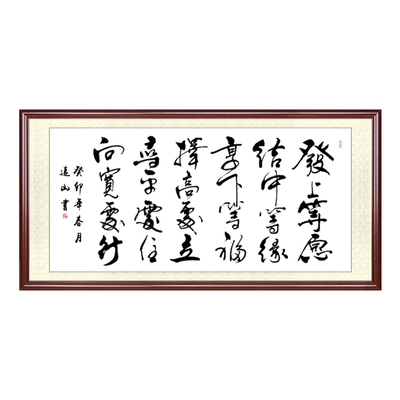 發上等愿
結中等緣
享下等福
擇高處立
尋平處住
向寬處行
癸卯年春月
遠山書